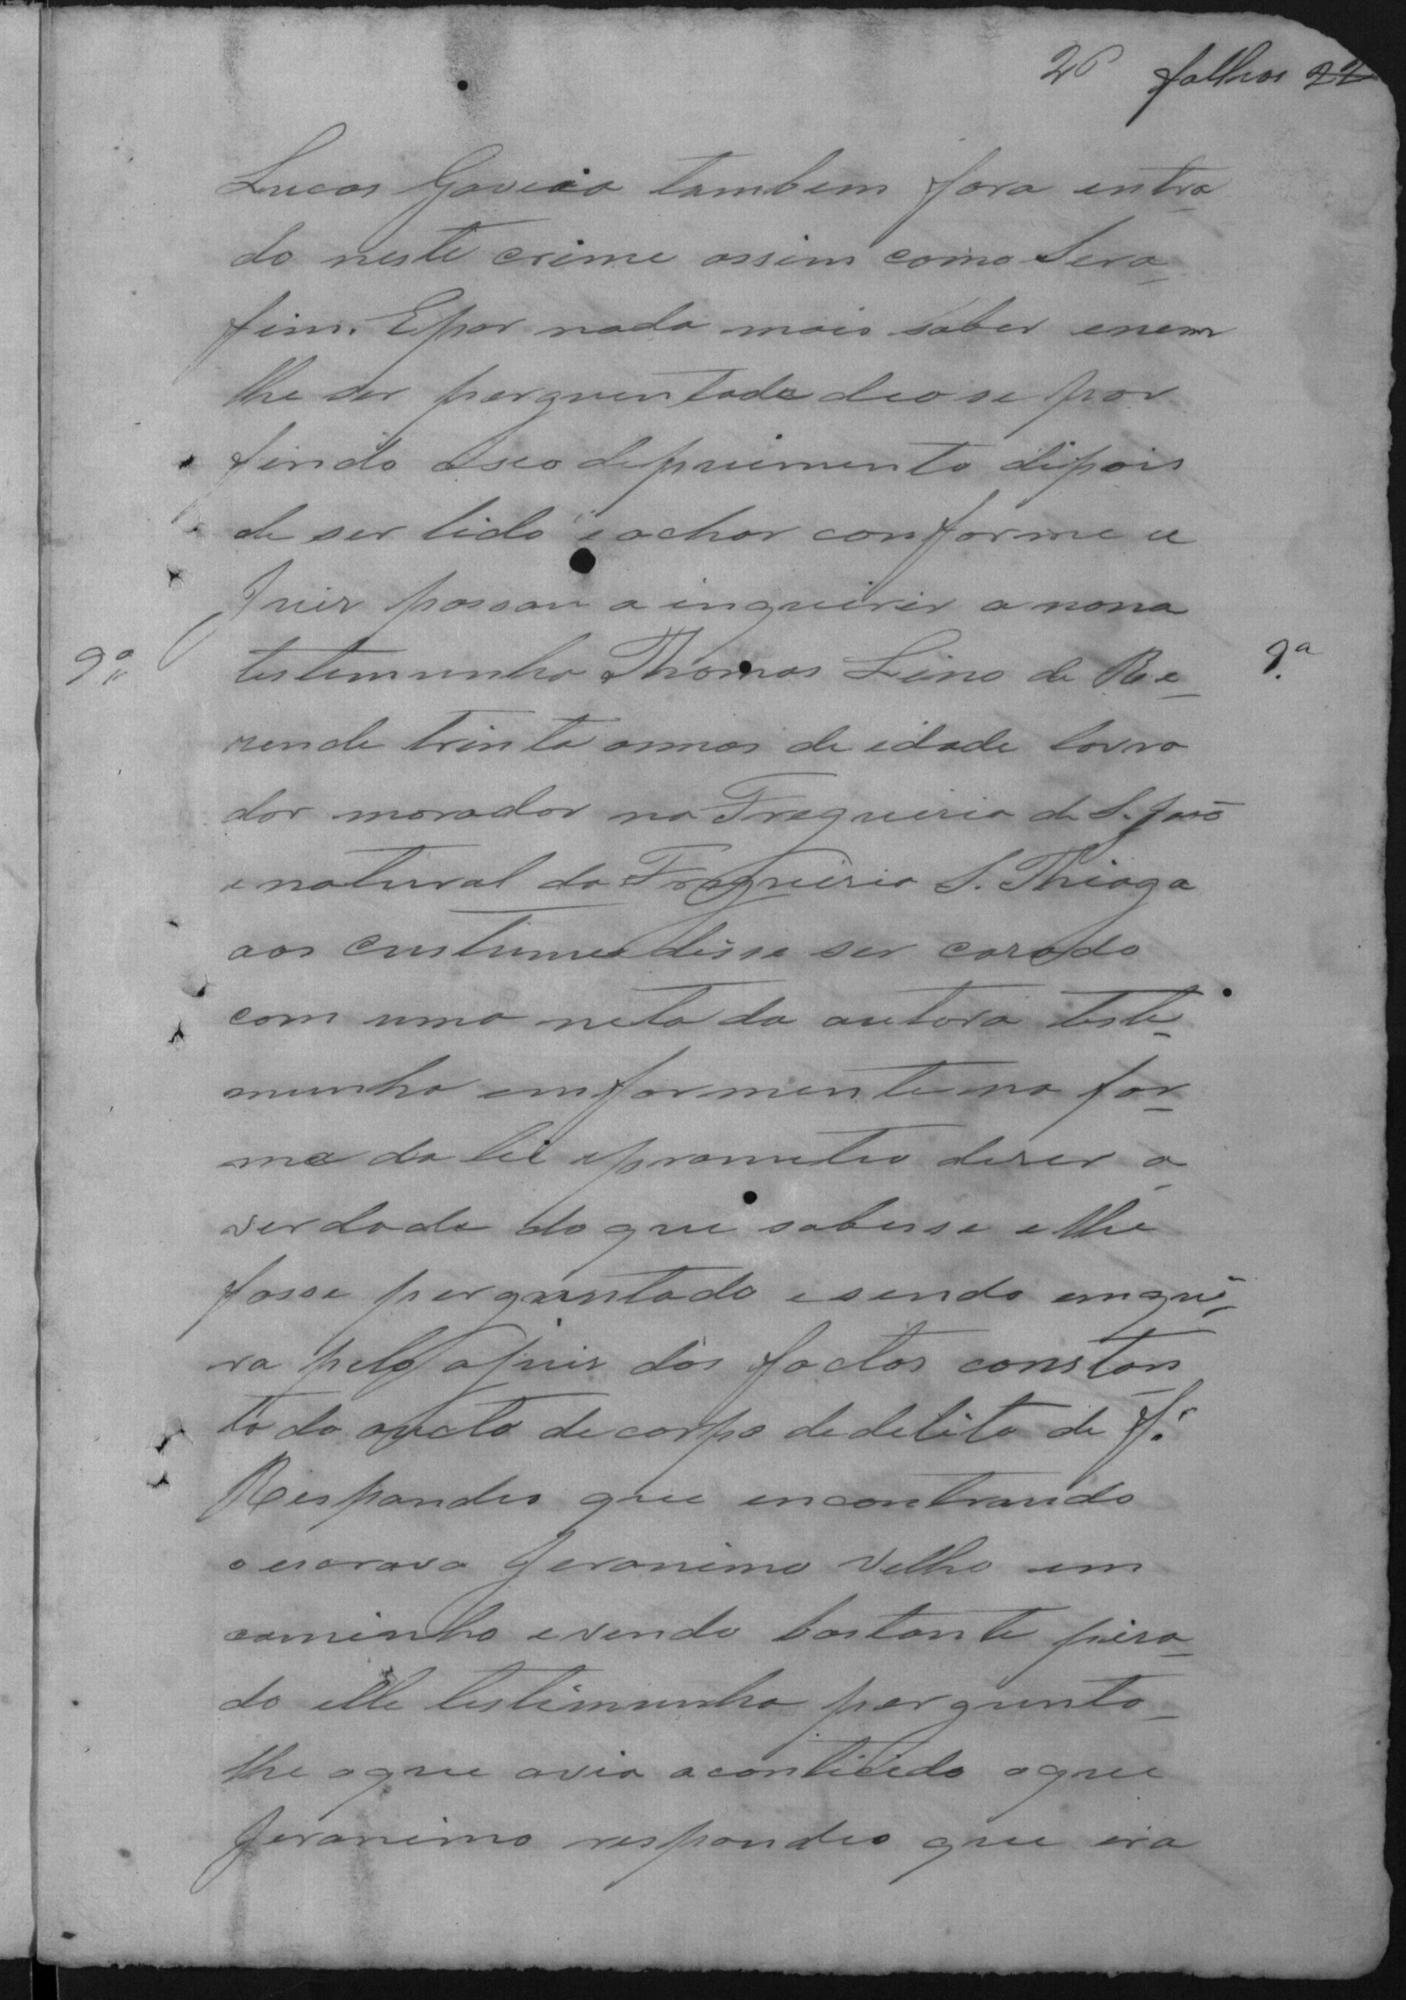 26 folhas 22
Lucas Gavião tambem fora entra
do neste crime assim como Sera-
fim. Epor nada mais saber enem
lhe ser perguntado deo se por
findo oseo depuimento dipois
de ser lido e achar conforme e
Juiz passou a inquirir a nona
9ª testemunha Thomas Lino de Re- 9ª
zende trinta annos de idade lavra
dor morador na Freguizia de S. João
e natural da Freguizia S. Thiago
aos custumes disse ser cazado
com uma neta da autora teste-
munha emformente na for-
ma da lei eprometeo dizer a
verdade do que sabesse elhe
fosse perguntado esendo emqui-
ra pelo o juiz dos factos constan
te do aucto de corpo dedelito de f.
Respondeo que encontrando
o escravo Jeronimo Velho em
caminho evendo bastante piza-
do elle testimunha pergunto-
lhe oque avia aconticido oque
Jeronimo respondeo que era